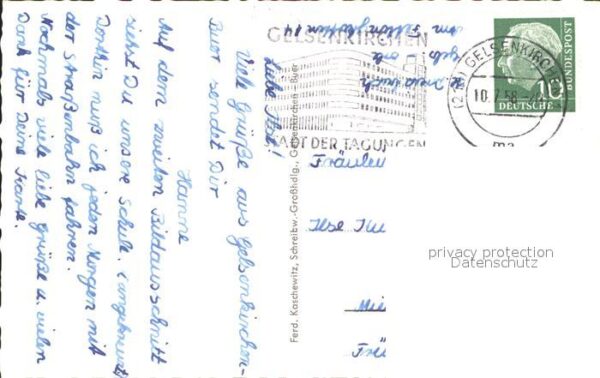 Liebe Ilse!
Viele Grüße aus Gelsenkirchen-
Buer sendet Dir
Hanne
Auf dem zweiten Bildausschnitt
siehst Du unsere Schule. (angekreuzt)
Dorthin muß ich jeden Morgen mit
der Straßenbahn fahren.
Nochmals viele liebe Grüße u. vielen
Dank für Deine Karte.
Ferd. Kaschewitz, Schreibw.-Großhdlg., Gelsenkirchen - Buer
GELSENKIRCHEN
STADT DER TAGUNGEN
GELSENKIRCHEN
10.7.58
10
DEUTSCHE
BUNDESPOST
Fräulein
Ilse
privacy protection
Datenschutz